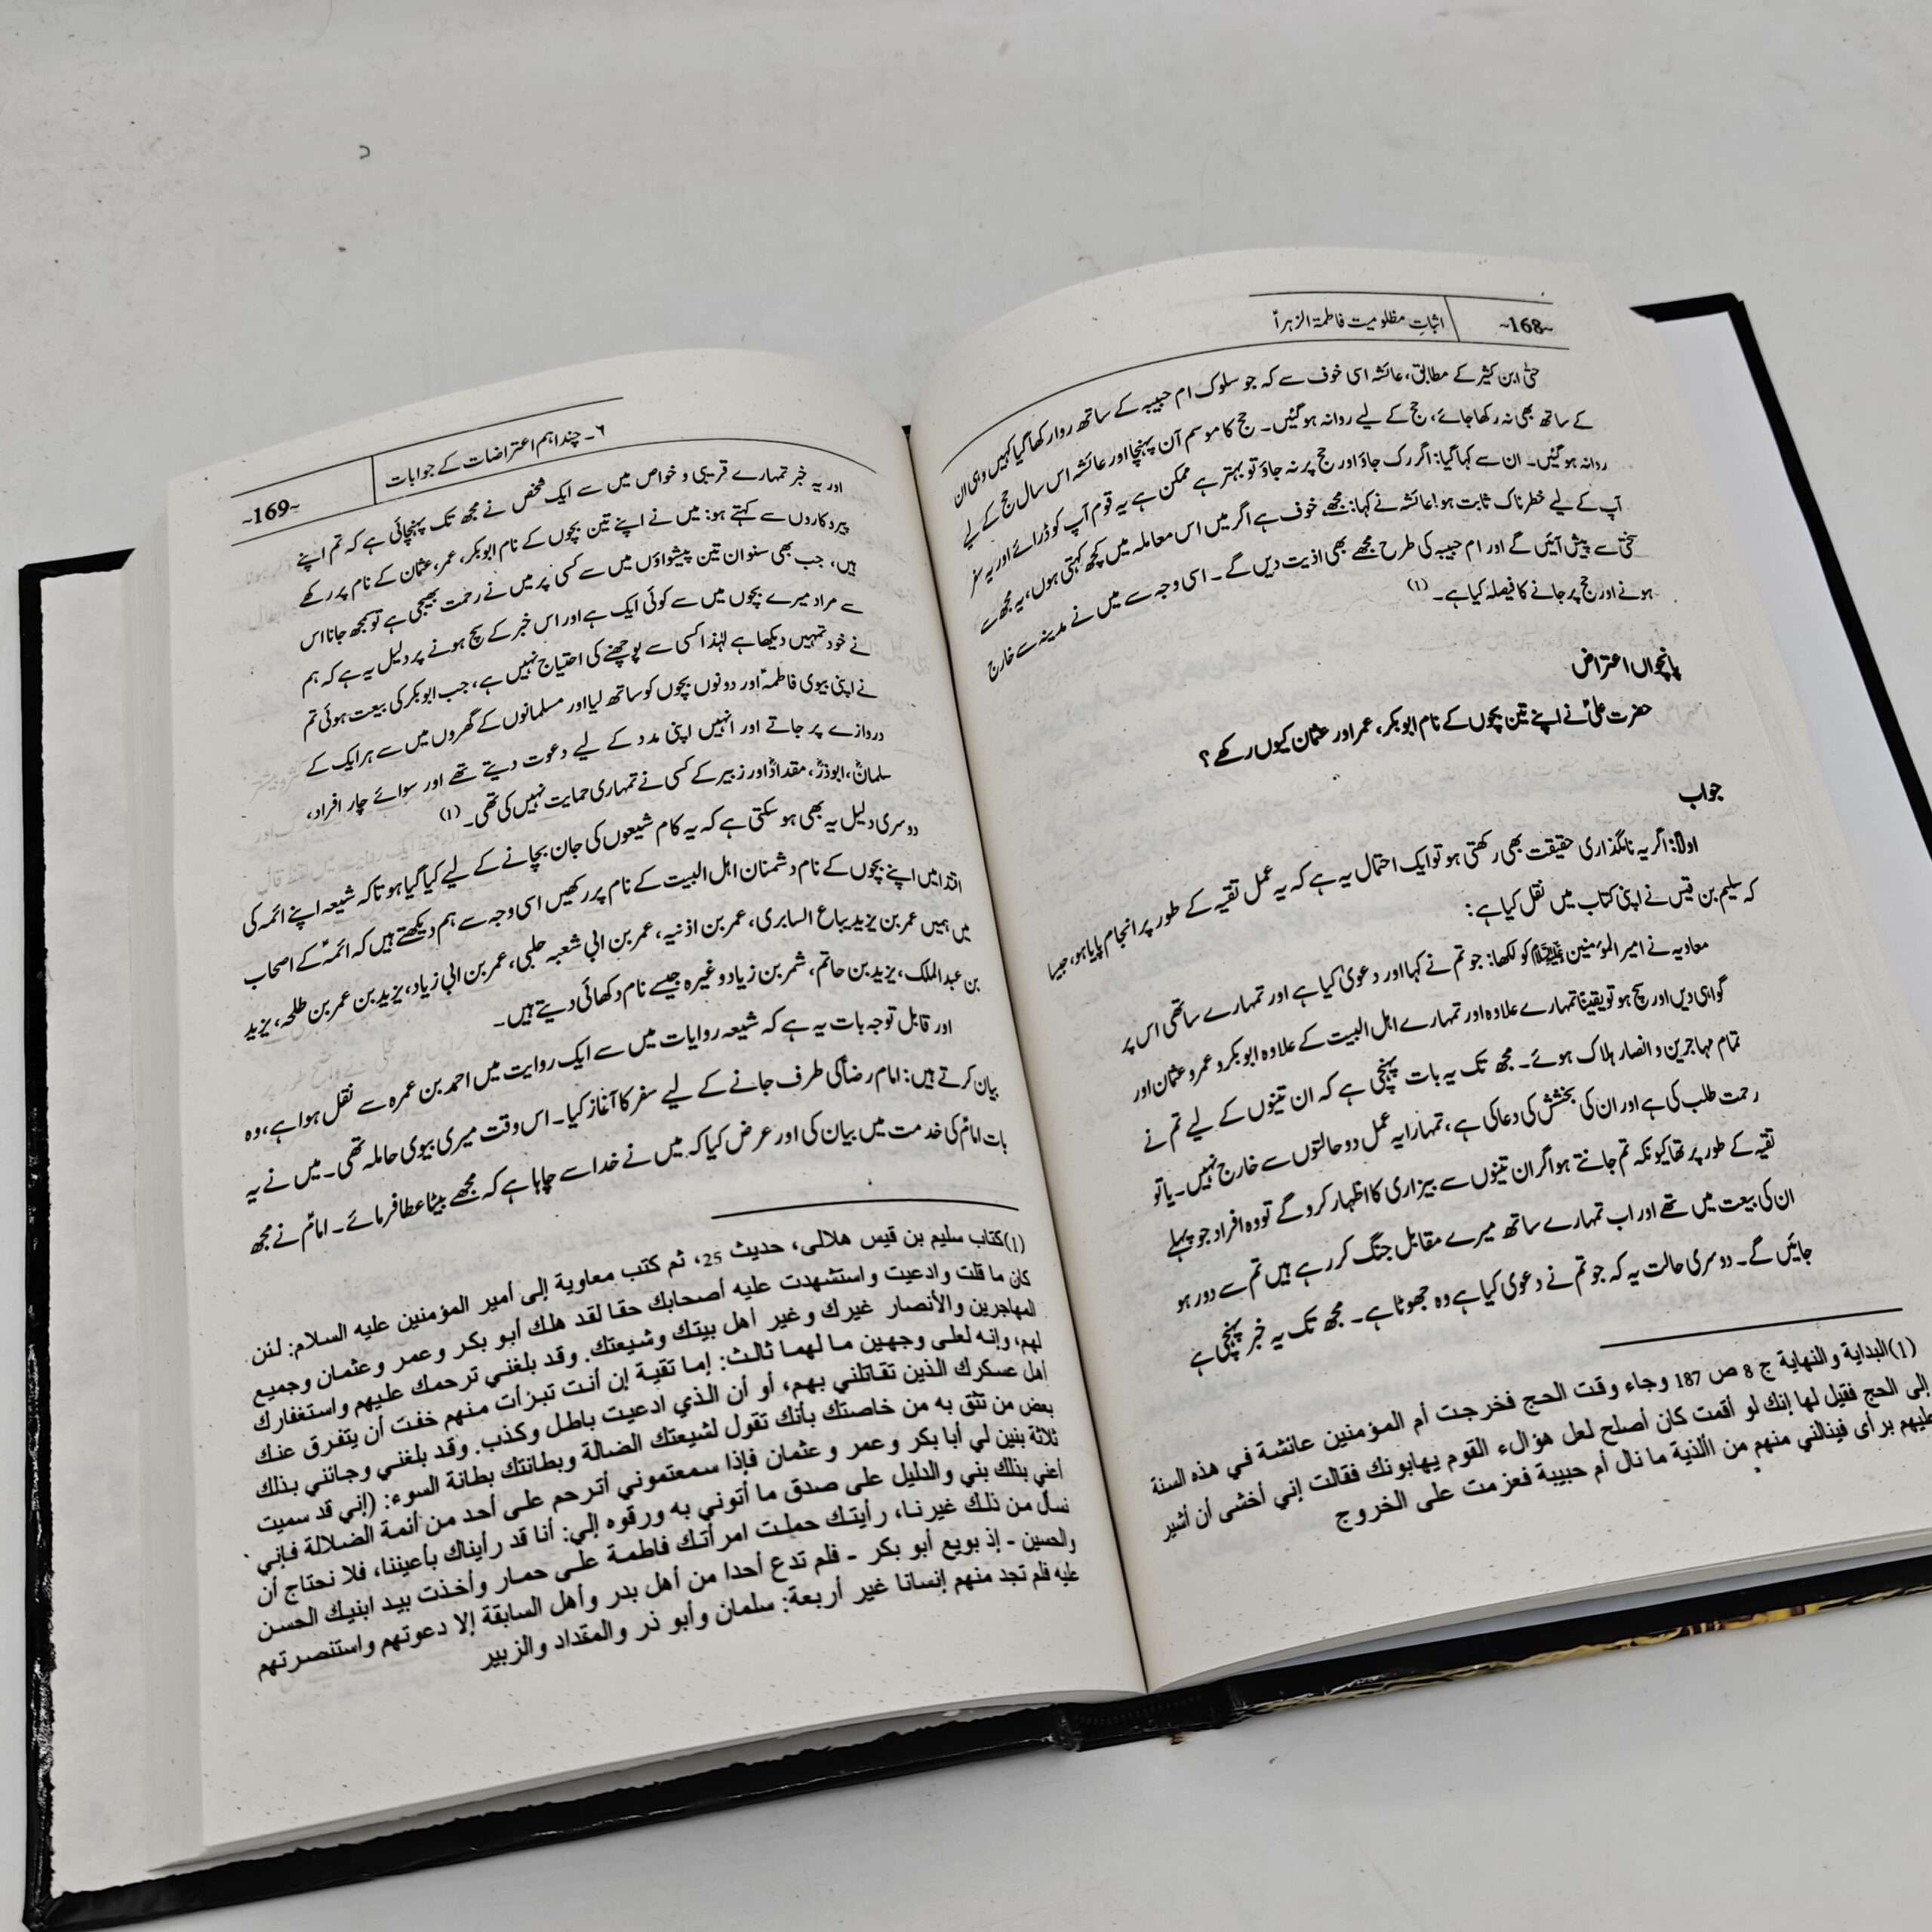 ~168~ اثباتِ مظلومیت فاطمۃ الزہراؑ
حتیٰ ابن کثیر کے مطابق، عائشہ اسی خوف سے کہ جو سلوک ام حبیبہ کے ساتھ روا رکھا گیا کہیں وہی ان
کے ساتھ بھی نہ رکھا جائے، حج کے لیے روانہ ہو گئیں۔ حج کا موسم آن پہنچا اور عائشہ اس سال حج کے لیے
روانہ ہو گئیں۔ ان سے کہا گیا: اگر رک جاؤ اور حج پر نہ جاؤ تو بہتر ہے ممکن ہے یہ قوم آپ کو ڈرائے اور یہ سفر
آپ کے لیے خطرناک ثابت ہو! عائشہ نے کہا: مجھے خوف ہے اگر میں اس معاملہ میں کچھ کہتی ہوں، یہ مجھ سے
سختی سے پیش آئیں گے اور ام حبیبہ کی طرح مجھے بھی اذیت دیں گے۔ اسی وجہ سے میں نے مدینہ سے خارج
ہونے اور حج پر جانے کا فیصلہ کیا ہے۔ (1)
پانچواں اعتراض
حضرت علیؑ نے اپنے تین بچوں کے نام ابوبکر، عمر اور عثمان کیوں رکھے؟
جواب
اولاً: اگر یہ نامگذاری حقیقت بھی رکھتی ہو تو ایک احتمال یہ ہے کہ یہ عمل تقیہ کے طور پر انجام پایا ہو، جیسا
کہ سلیم بن قیس نے اپنی کتاب میں نقل کیا ہے:
معاویہ نے امیر المؤمنین علیہ السلام کو لکھا: جو تم نے کہا اور دعویٰ کیا ہے اور تمہارے ساتھی اس پر
گواہی دیں اور سچ ہو تو یقیناً تمہارے علاوہ اور تمہارے اہل البیت کے علاوہ ابوبکر و عمر و عثمان اور
تمام مہاجرین و انصار ہلاک ہوئے۔ مجھ تک یہ بات پہنچی ہے کہ ان تینوں کے لیے تم نے
رحمت طلب کی ہے اور ان کی بخشش کی دعا کی ہے، تمہارا یہ عمل دو حالتوں سے خارج نہیں۔ یا تو
تقیہ کے طور پر تھا کیونکہ تم جانتے ہو اگر ان تینوں سے بیزاری کا اظہار کرو گے تو وہ افراد جو پہلے
ان کی بیعت میں تھے اور اب تمہارے ساتھ میرے مقابل جنگ کر رہے ہیں تم سے دور ہو
جائیں گے۔ دوسری حالت یہ کہ جو تم نے دعوی کیا ہے وہ جھوٹا ہے۔ مجھ تک یہ خبر پہنچی ہے
(1) البداية والنهاية ج 8 ص 187 وجاء وقت الحج فخرجت أم المؤمنين عائشة في هذه السنة
إلى الحج فقيل لها إنك لو أقمت كان أصلح لعل هؤالء القوم يهابونك فقالت إني أخشى أن أشير
عليهم برأى فينالني منهم من األذية ما نال أم حبيبة فعزمت على الخروج
٦۔ چند اہم اعتراضات کے جوابات ~169~
اور یہ خبر تمہارے قریبی و خواص میں سے ایک شخص نے مجھ تک پہنچائی ہے کہ تم اپنے
پیروکاروں سے کہتے ہو: میں نے اپنے تین بچوں کے نام ابوبکر، عمر، عثمان کے نام پر رکھے
ہیں، جب بھی سنو ان تین پیشواؤں میں سے کسی پر میں نے رحمت بھیجی ہے تو سمجھ جانا اس
سے مراد میرے بچوں میں سے کوئی ایک ہے اور اس خبر کے سچ ہونے پر دلیل یہ ہے کہ ہم
نے خود تمہیں دیکھا ہے لہٰذا کسی سے پوچھنے کی احتیاج نہیں ہے، جب ابوبکر کی بیعت ہوئی تم
نے اپنی بیوی فاطمہؑ اور دونوں بچوں کو ساتھ لیا اور مسلمانوں کے گھروں میں سے ہر ایک کے
دروازے پر جاتے اور انہیں اپنی مدد کے لیے دعوت دیتے تھے اور سوائے چار افراد،
سلمانؓ، ابوذرؓ، مقدادؓ اور زبیر کے کسی نے تمہاری حمایت نہیں کی تھی۔ (1)
دوسری دلیل یہ بھی ہو سکتی ہے کہ یہ کام شیعوں کی جان بچانے کے لیے کیا گیا ہو تاکہ شیعہ اپنے ائمہ کی
اقتدا میں اپنے بچوں کے نام دشمنان اہل البیت کے نام پر رکھیں اسی وجہ سے ہم دیکھتے ہیں کہ ائمہؑ کے اصحاب
میں ہمیں عمر بن یزید بیاع السابری، عمر بن اذنیہ، عمر بن ابی شعبہ حلبی، عمر بن ابی زیاد، یزید بن عمر بن طلحہ، یزید
بن عبدالملک، یزید بن حاتم، شمر بن زیاد وغیرہ جیسے نام دکھائی دیتے ہیں۔
اور قابل توجہ بات یہ ہے کہ شیعہ روایات میں سے ایک روایت میں احمد بن عمرہ سے نقل ہوا ہے، وہ
بیان کرتے ہیں: امام رضاؑ کی طرف جانے کے لیے سفر کا آغاز کیا۔ اس وقت میری بیوی حاملہ تھی۔ میں نے یہ
بات امامؑ کی خدمت میں بیان کی اور عرض کیا کہ میں نے خدا سے چاہا ہے کہ مجھے بیٹا عطا فرمائے۔ امامؑ نے مجھ
(1) كتاب سليم بن قيس هلالى، حديث 25، ثم كتب معاوية إلى أمير المؤمنين عليه السلام: لئن
كان ما قلت وادعيت واستشهدت عليه أصحابك حقا لقد هلك أبو بكر وعمر وعثمان وجميع
المهاجرين والأنصار غيرك وغير أهل بيتك وشيعتك. وقد بلغني ترحمك عليهم واستغفارك
لهم، وإنه لعلى وجهين ما لهما ثالث: إما تقية إن أنت تبرأت منهم خفت أن يتفرق عنك
أهل عسكرك الذين تقاتلني بهم، أو أن الذي ادعيت باطل وكذب. وقد بلغني وجائني بذلك
بعض من تثق به من خاصتك بأنك تقول لشيعتك الضالة وبطانتك بطانة السوء: (إني قد سميت
ثلاثة بنين لي أبا بكر وعمر وعثمان فإذا سمعتموني أترحم على أحد من أئمة الضلالة فإني
أعني بذلك بني والدليل على صدق ما أتوني به ورقوه إلي: أنا قد رأيناك بأعيننا، فلا نحتاج أن
نسأل من ذلك غيرنا، رأيتك حملت امرأتك فاطمة على حمار وأخذت بيد ابنيك الحسن
والحسين - إذ بويع أبو بكر - فلم تدع أحدا من أهل بدر وأهل السابقة إلا دعوتهم واستنصرتهم
عليه فلم تجد منهم إنسانا غير أربعة: سلمان وأبو ذر والمقداد والزبير